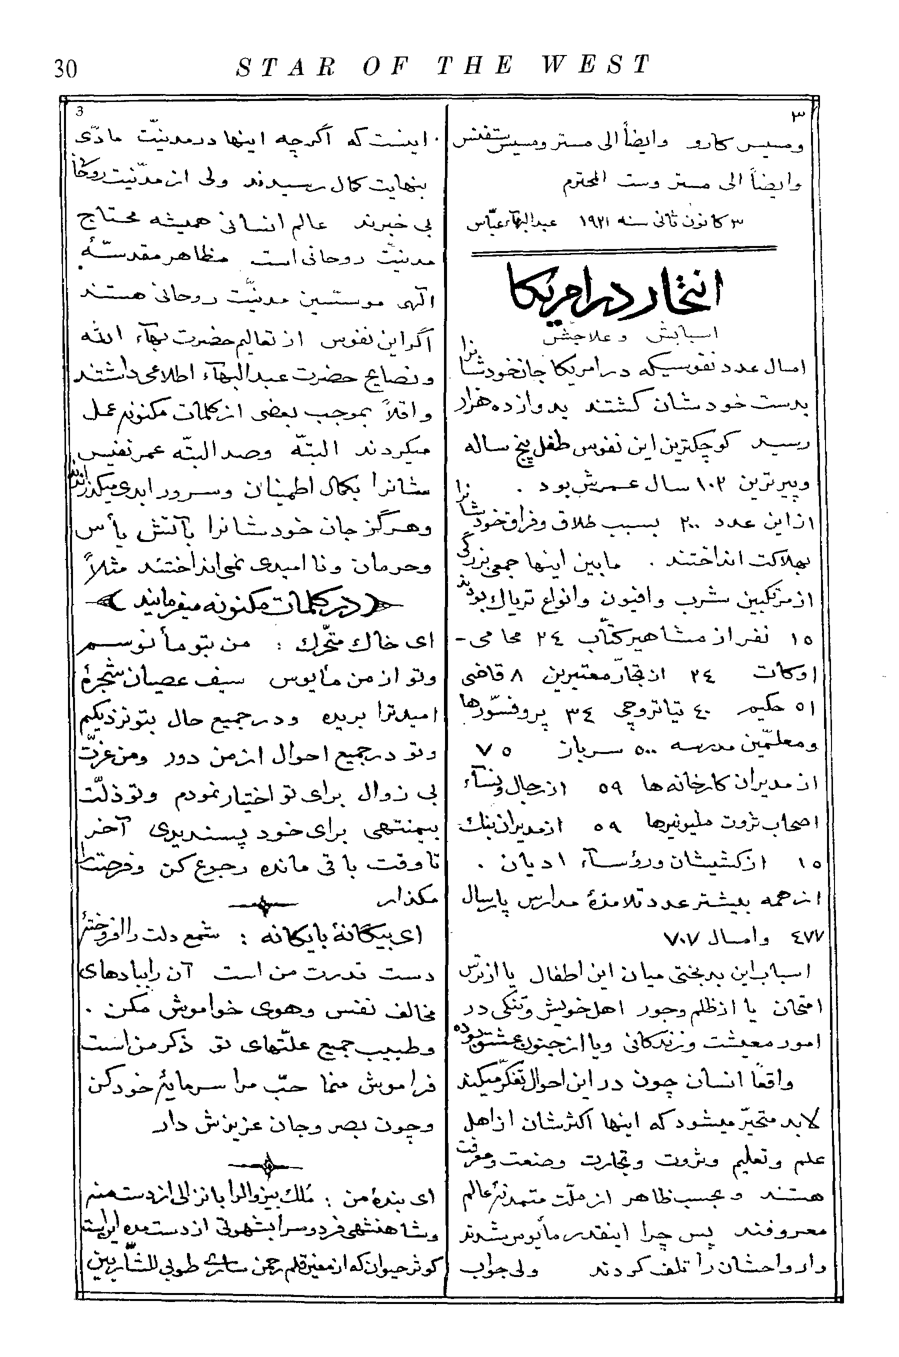 30 STAR OF THE WEST
۳
ومیسس کارو وایضاً الی مستر ومیسیس ستفنس
وایضاً الی مستر وست المحترم
۳ کانون ثانی سنه ۱۹۲۱ عبدالبهآء عبّاس
انتحار در امریکا
اسبابش و علاجش
امسال عدد نفوسیکه در امریکا جان خودشانرا
بدست خودشان کشتند بدوازده هزار
رسید کوچکترین این نفوس طفل پنج ساله
وپیرترین ۱۰۲ سال عمرش بود .
ازاین عدد ۲۰۰ بسبب طلاق وفراق خودشانرا
بهلاکت انداختند . مابین اینها جمعی بزرگی
از مرتکبین شرب وافیون وانواع تریاک بودند
۱۵ نفر از مشاهیر کتّاب ۲۴ محامی -
اوکات ۲۴ از تجّار معتبرین ۸ قاضی
۵۱ حکیم ۴۰ تیاتروچی ۳۴ پروفسّورها
ومعلّمین مدرسه ۵۰۰ سرباز ۷۵
از مدیران کارخانه‌ها ۵۹ از رجال ونسآء
اصحاب ثروت ملیونیرها ۵۹ از مدیران بنک
۱۵ از کشیشان ورؤسآء ادیان .
از همه بیشتر عدد تلامذهٔ مدارس پارسال
۴۷۷ وامسال ۷۰۷
اسباب این بدبختی میان این اطفال یا از ترس
امتحان یا از ظلم وجور اهل خویش وتنگی در
امور معیشت وزندگانی ویا از جنون عشق بوده
واقعاً انسان چون در این احوال تفکّر میکند
لابد متحیّر میشود که اینها اکثرشان از اهل
علم وتعلیم وثروت وتجارت وصنعت ومعرفت
هستند وبحسب ظاهر از ملّت متمدنهٔ عالم
معروفند پس چرا اینقدر مأیوس شدند
وارواحشان را تلف کردند ولی جواب
3
اینست که اگرچه اینها در مدنیّت مادّی
بنهایت کمال رسیدند ولی از مدّنیت روحانی
بی خبرند عالم انسانی همیشه محتاج
مدنیّت روحانی است مظاهر مقدسهٔ
الهی موسّسین مدنیّت روحانی هستند
اگر این نفوس از تعالیم حضرت بهآء الله
ونصایح حضرت عبدالبهآء اطلاعی داشتند
واقلاً بموجب بعضی از کلمات مکنونه عمل
میکردند البتّه وصد البتّه عمر نفیس
شانرا بکمال اطمینان وسرور ابدی میگذراندند
وهرگز جان خودشانرا بآتش یأس
وحرمان ونا امیدی نمی انداختند مثلاً
در کلمات مکنونه میفرمایند
ای خاک متحرّک : من بتو مأنوسم
وتو از من مأیوس سیف عصیان شجرهٔ
امید ترا بریده ودر جمیع حال بتو نزدیکم
وتو در جمیع احوال از من دور ومن عزّت
بی زوال برای تو اختیار نمودم وتو ذلّت
بیمنتهی برای خود پسندیدی آخر
تا وقت باقی مانده رجوع کن وفرصت را
مگذار
ای بیگانهٔ با یگانه : شمع دلت را افروختهٔ
دست قدرت من است آن را ببادهای
مخالف نفس وهوی خاموش مکن .
وطبیب جمیع علّتهای تو ذکر من است
فراموش منما حبّ مرا سرمایهٔ خود کن
وچون بصر وجان عزیزش دار
ای بندهٔ من : مُلک بیزوال را بانزالی از دست منه
وشاهنشهی فردوس را بشهوتی از دست مده این است
کوثر حیوان که از معین قلم رحمن ساری طوبی للشّاربین